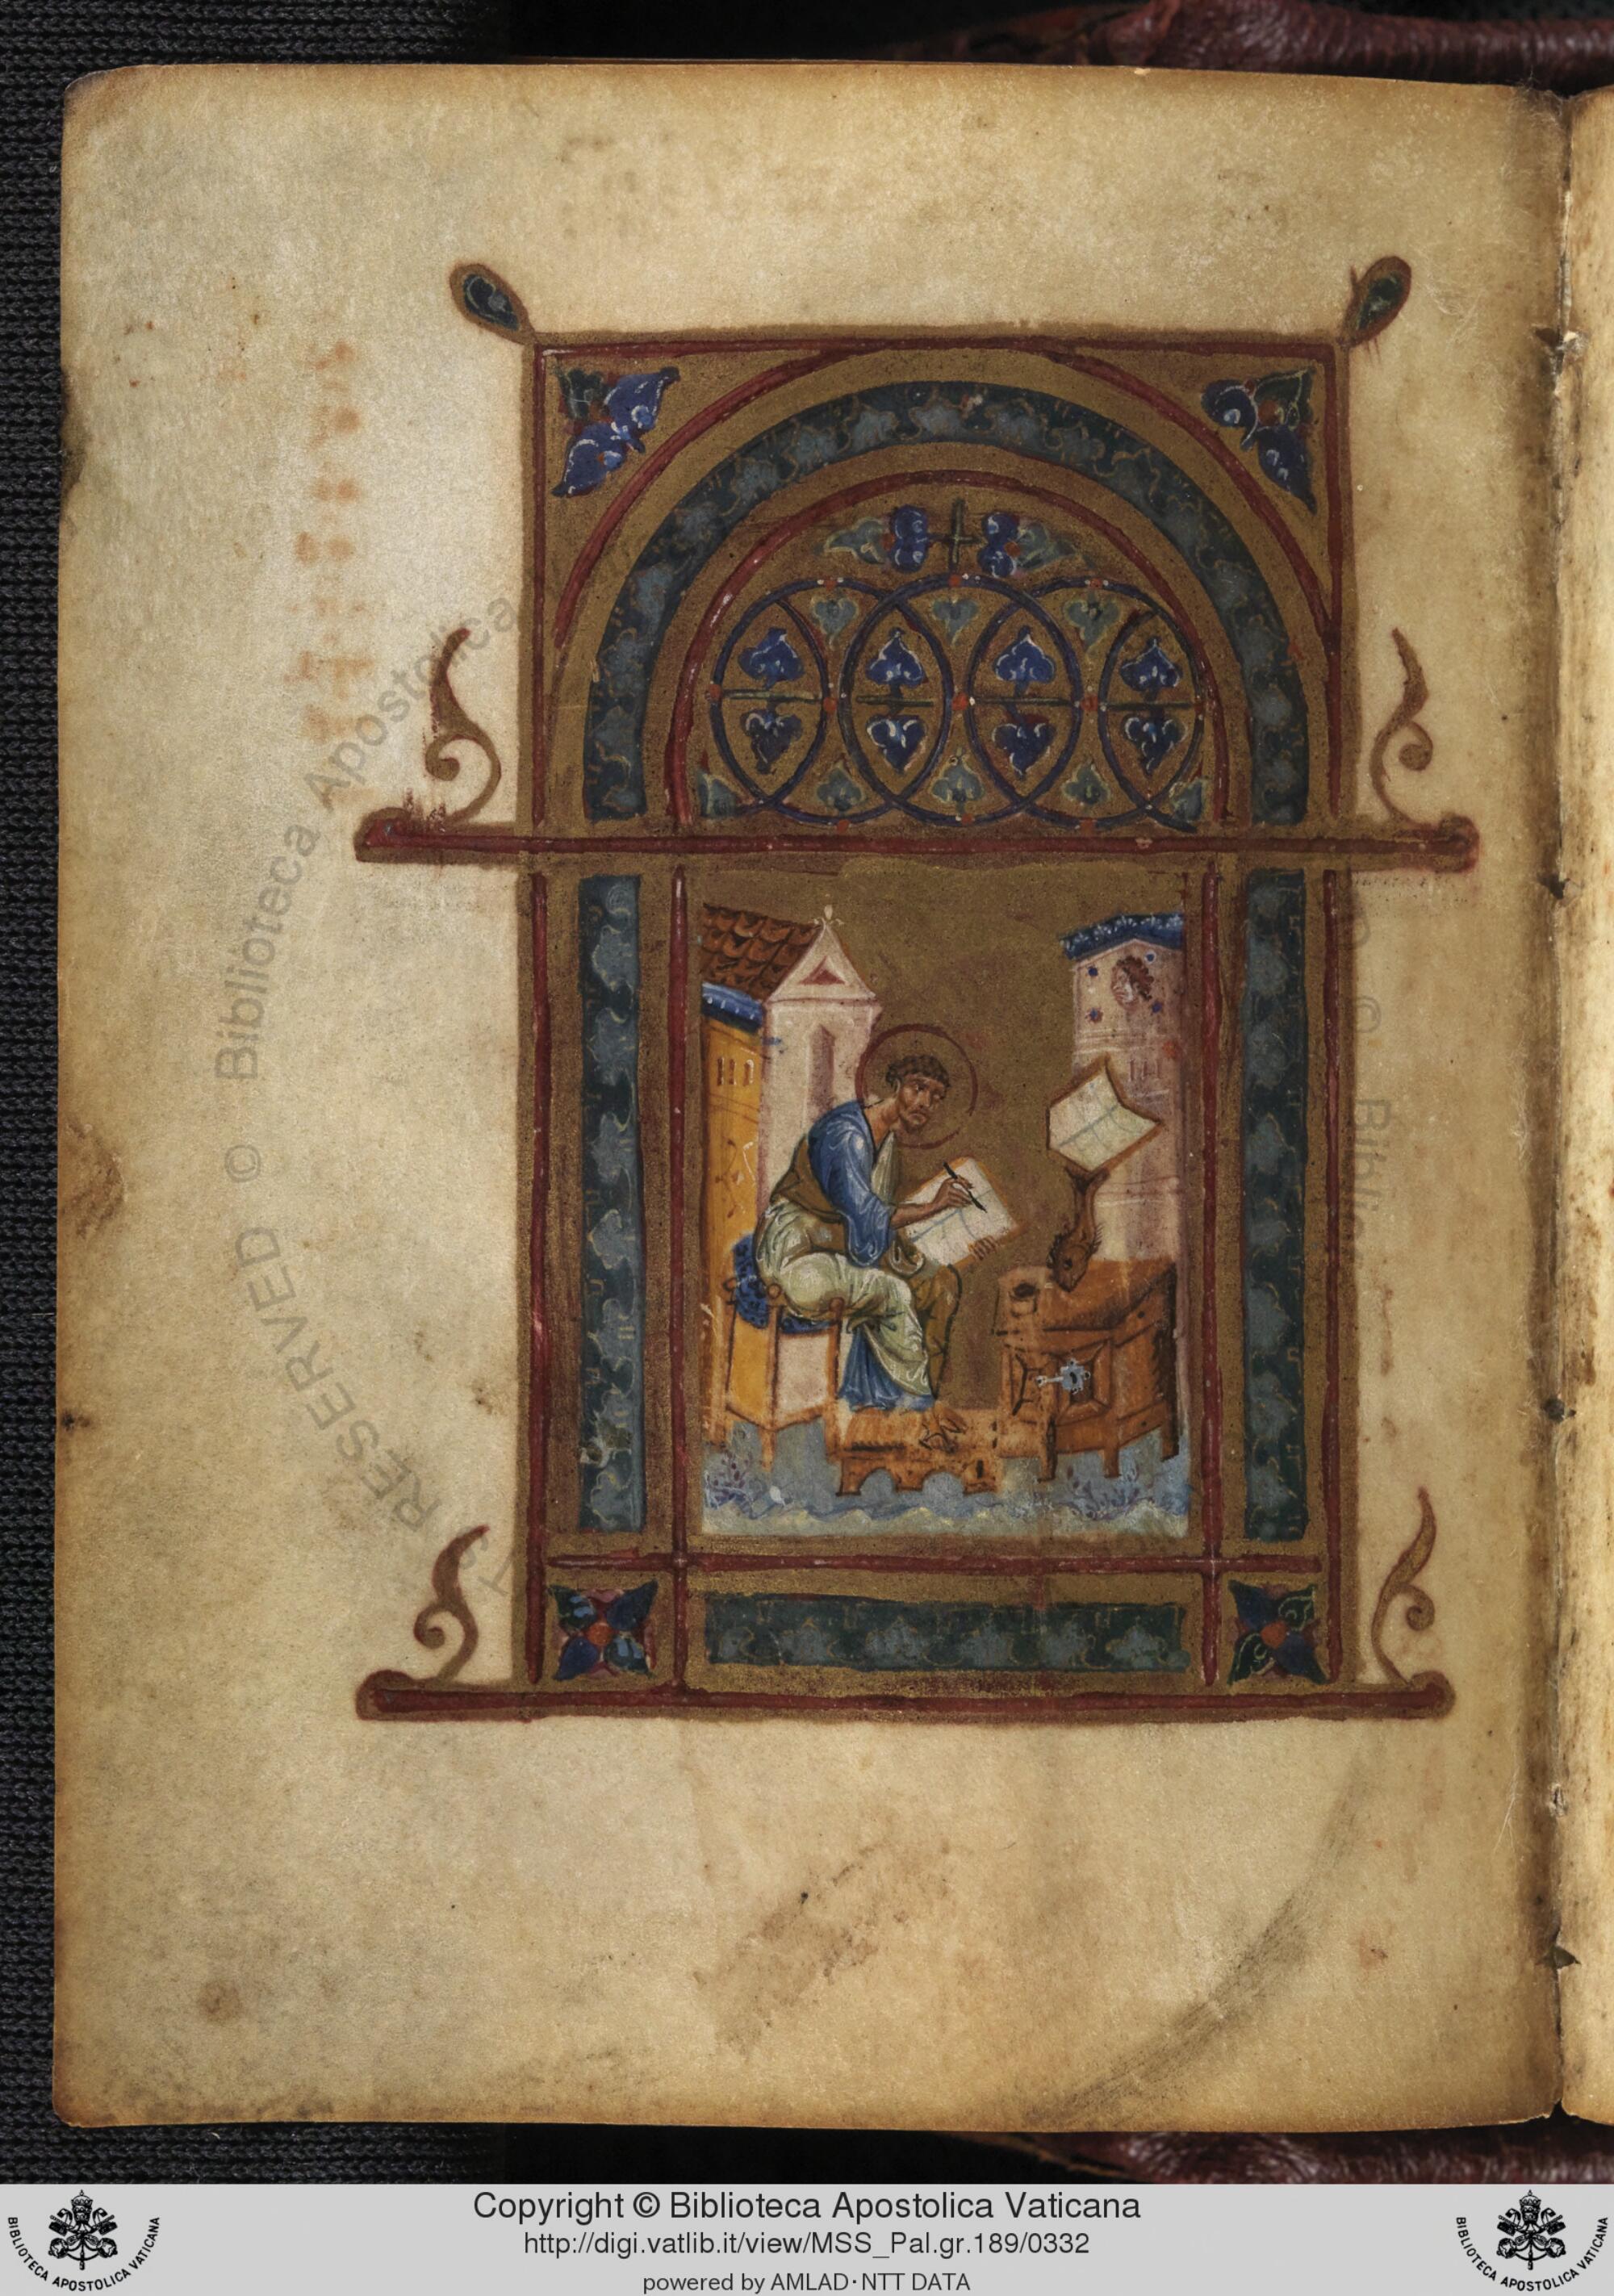 © Biblioteca Apostolica
RESERVED
© Biblio
Copyright © Biblioteca Apostolica Vaticana
http://digi.vatlib.it/view/MSS_Pal.gr.189/0332
powered by AMLAD·NTT DATA
BIBLIOTECA APOSTOLICA VATICANA
BIBLIOTECA APOSTOLICA VATICANA